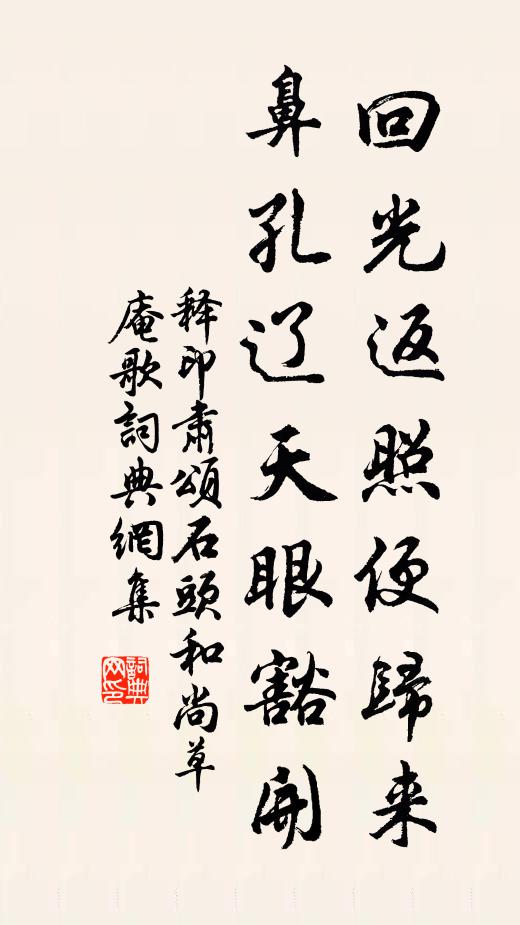 回光返照便歸来
鼻孔辽天眼豁開
释印肃頌石頭和尚草
庵歌詞典網集
詞典网印